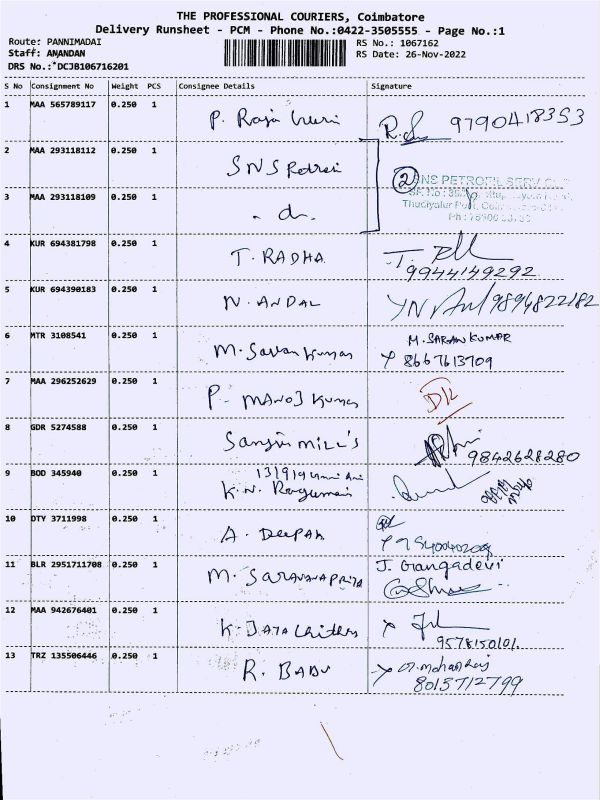 THE PROFESSIONAL COURIERS, Coimbatore
Delivery Runsheet - PCM - Phone No.:0422-3505555 - Page No.:1
Route: PANNIMADAI
RS No.: 1067162
Staff: ANANDAN
RS Date: 26-Nov-2022
DRS No.:*DCJB106716201
S No Consignment No Weight PCS Consignee Details Signature
1 MAA 565789117 0.250 1 P. Raja 9790418353
2 MAA 293118112 0.250 1 SNS Petrol
2 SNS PETROFIL SERV
3 MAA 293118109 0.250 1 - do.
Thudiyalur Post,
4 KUR 694381798 0.250 1 T. RADHA
9944149292
5 KUR 694390183 0.250 1 N. ANDAL 9894822182
6 MTR 3108541 0.250 1 M. Savan Kumar M. SARAN KUMAR
8667613709
7 MAA 296252629 0.250 1 P. MANOJ Kumar
8 GDR 5274588 0.250 1 MILL'S 9842628280
9 BOD 345940 0.250 1 K.N.
10 DTY 3711998 0.250 1 A. Deepak
11 BLR 2951711708 0.250 1 M. SARAVANAPRIYA J. Gangadevi
12 MAA 942676401 0.250 1 K. JAYA
9578150101.
13 TRZ 135506446 0.250 1 R. BABU
8015712799